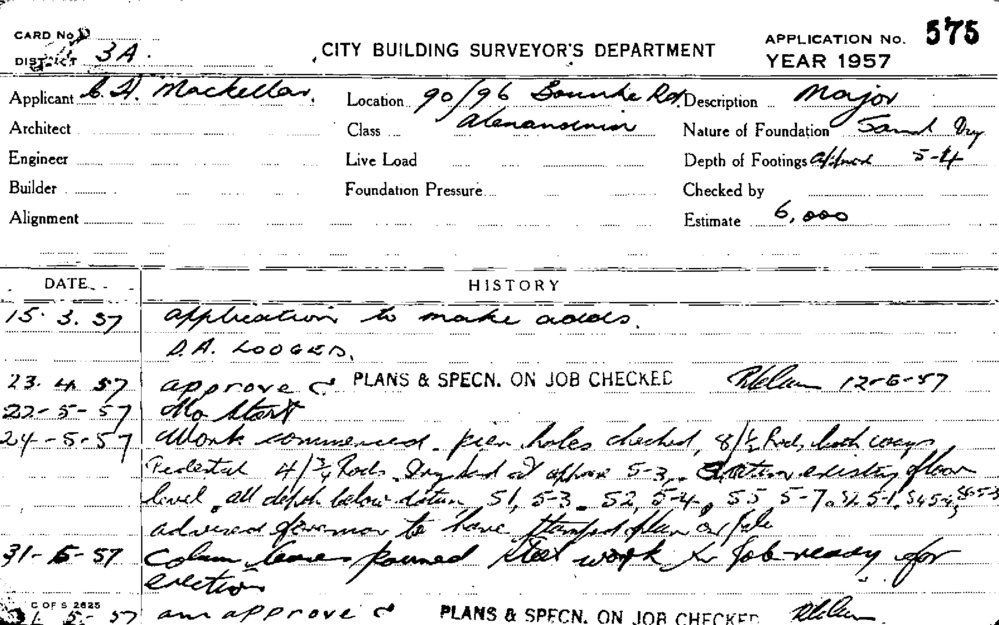 CARD No.
DISTRICT 3A.
CITY BUILDING SURVEYOR'S DEPARTMENT
APPLICATION No. 575
YEAR 1957
Applicant C. H. Mackellar. Location 90/96 Bourke Rd. Description Major
Architect Class Alexandria Nature of Foundation Sand Dry
Engineer Live Load Depth of Footings 5-4
Builder Foundation Pressure Checked by
Alignment Estimate 6,000
DATE HISTORY
15. 3. 57 application to make adds.
D.A. LODGED.
23. 4. 57 approved PLANS & SPECN. ON JOB CHECKED 12-6-57
22-5-57 No Start
24-5-57 Work commenced. pier holes checked, 8/½ Rods both ways
Pedestal 4/¾ Rods. 5-3. existing floor
level. all depth below datum. S1, 5-3. S2, 5-4, S5 5-7.
advised foreman to have stamped plan on job
31-5-57 Column bases poured steel work on Job ready for
erection
5-57 am approved PLANS & SPECN. ON JOB CHECKED
C OF S 2625